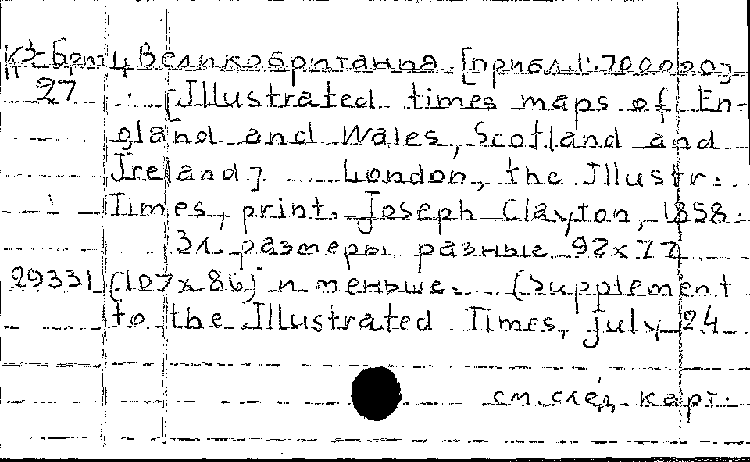 К 2-Брит 4 Великобритания. [прибл. 1:700000].
27 [Illustrated times maps of En-
gland and Wales, Scotland and
Ireland]. London, the Illustr.
Times, print. Joseph Clayton, 1858.
3л. размеры разные 92х77
29331 (107х86) и меньше. (Supplement
to the Illustrated Times, july 24
см. след. карт.